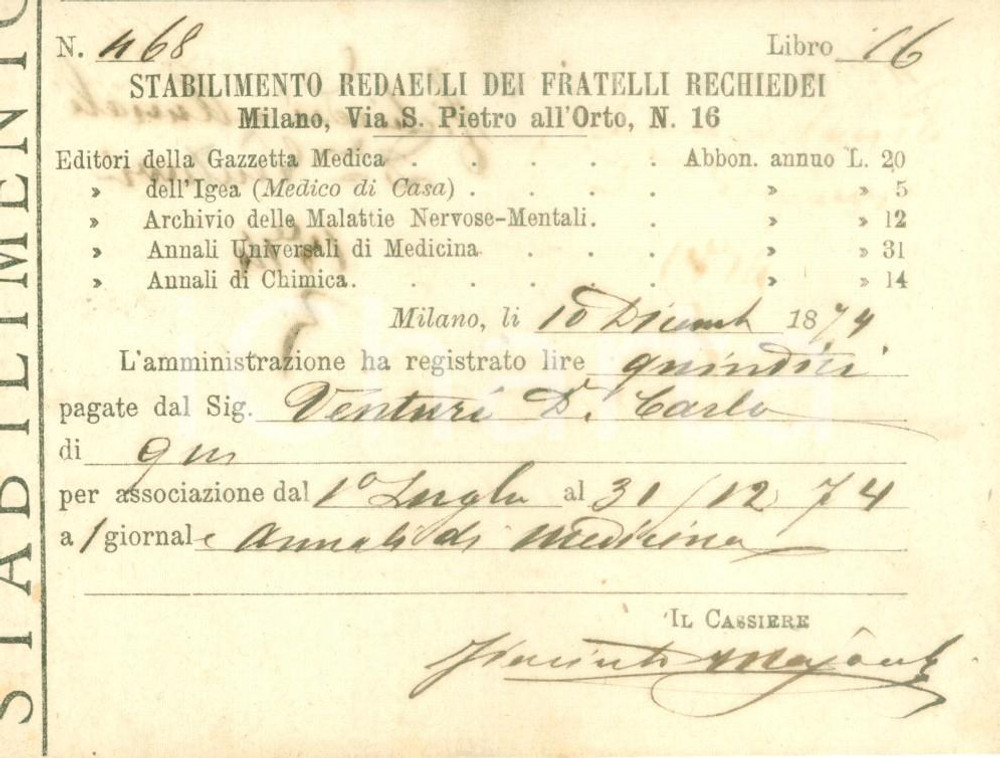 STABILIMENTO
N. 468 Libro 16
STABILIMENTO REDAELLI DEI FRATELLI RECHIEDEI
Milano, Via S. Pietro all'Orto, N. 16
Editori della Gazzetta Medica . . . . . Abbon. annuo L. 20
» dell'Igea (Medico di Casa) . . . . » » 5
» Archivio delle Malattie Nervose-Mentali. . » » 12
» Annali Universali di Medicina. . . . » » 31
» Annali di Chimica. . . . . . » » 14
Milano, li 10 Dicemb 1874
L'amministrazione ha registrato lire quindici
pagate dal Sig. Venturi Dr. Carlo
di qui
per associazione dal 1º Luglio al 31/12 74
a 1 giornale Annali di Medicina
IL CASSIERE
Giacinto